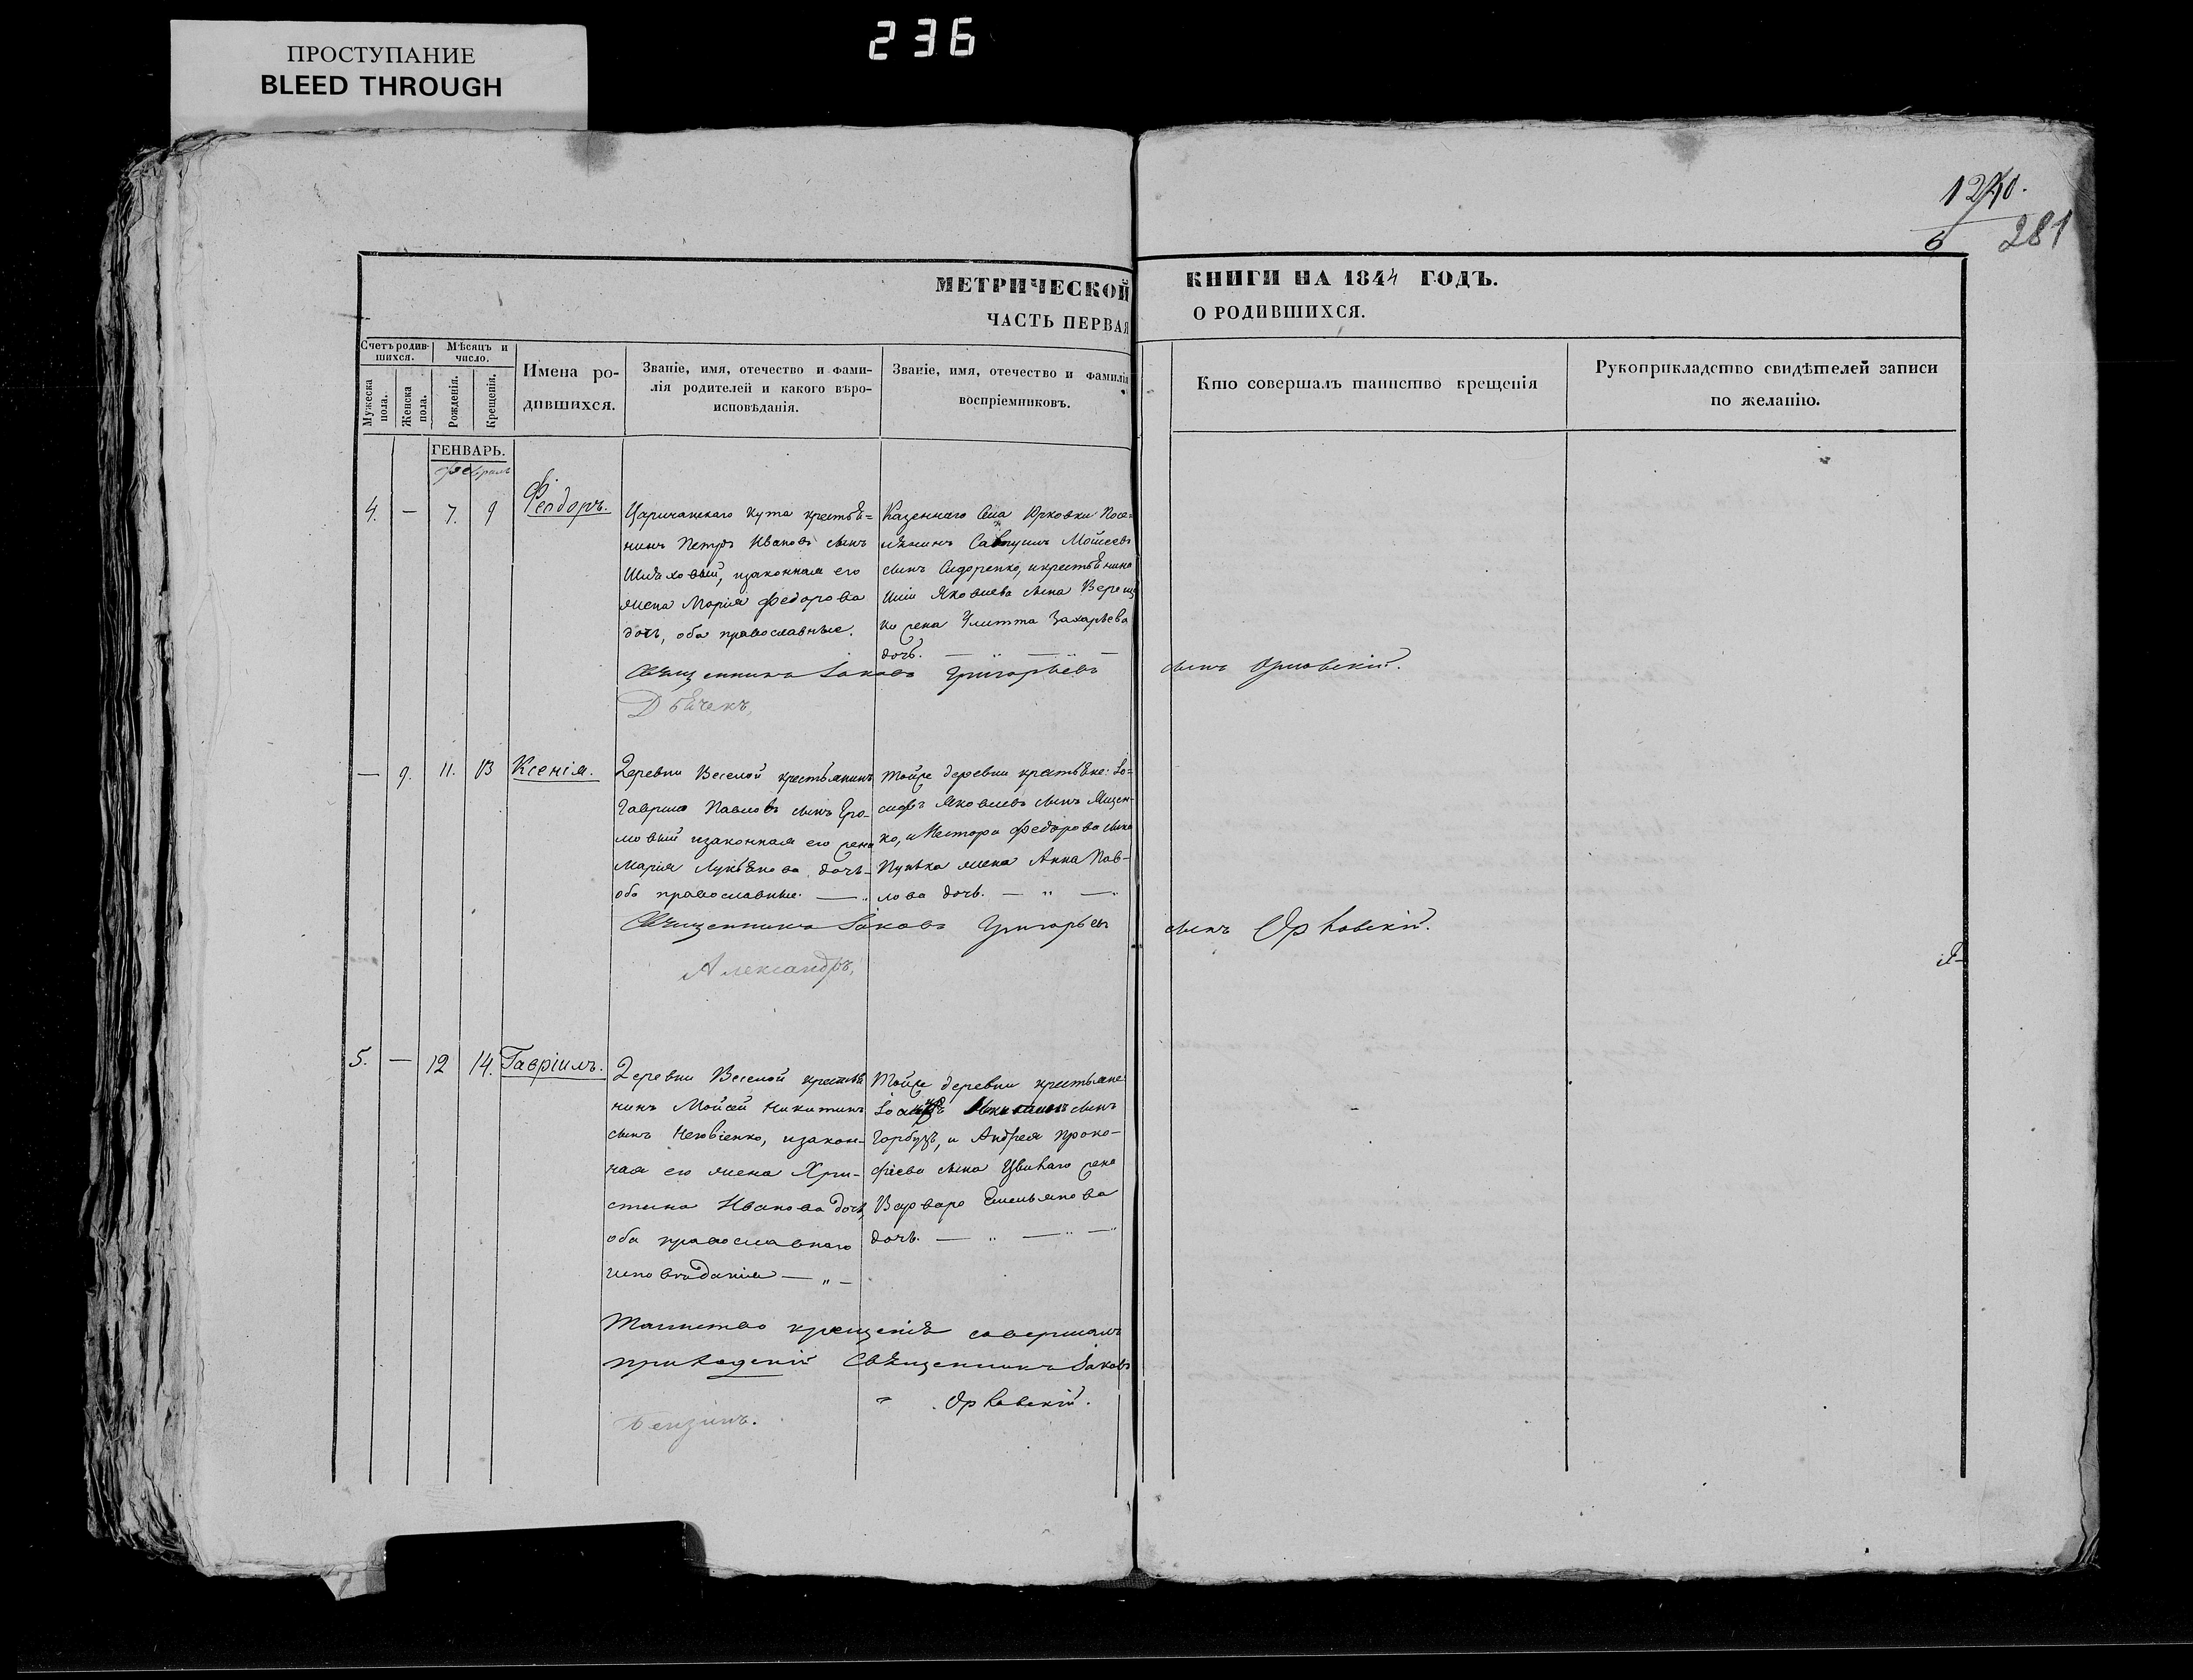 ПРОСТУПАНИЕ
BLEED THROUGH
236
1240.
6
281
МЕТРИЧЕСКОЙ КНИГИ НА 1844 ГОДЪ.
ЧАСТЬ ПЕРВАЯ О РОДИВШИХСЯ.
Счетъ родив-
шихся.
Мужеска пола.
Женска пола.
Мѣсяцъ и
число.
Рожденія.
Крещенія.
Имена ро-
дившихся.
Званіе, имя, отечество и фами-
лія родителей и какого вѣро-
исповѣданія.
Званіе, имя, отечество и фамилія
воспріемниковъ.
Кто совершалъ таинство крещенія
Рукоприкладство свидѣтелей записи
по желанію.
ГЕНВАРЬ.
февраль
4. — 7. 9 Феодоръ.
Царичанскаго кута крестья=
нинъ Петръ Ивановъ сынъ
изаконная его
жена Марія Федорова
дочь, оба православные.
Казеннаго Села Юрковки Посе=
лянинъ Моисеевъ
сынъ Сидоренко, и крестьянина
Яковлева сына
жена Улитта Захарьева
дочь. — „ — —
Священникъ Іаковъ Григорьевъ сынъ Орловскій.
— 9. 11. 13 Ксенія.
Деревни Веселой крестьянинъ
Гаврило Павловъ сынъ Гро-
мовый изаконная его жена
Марія Лукьянова дочь
оба православные. — „
тойже деревни крестьяне: Іо=
сифъ Яковлевъ сынъ Яцен-
ко, и Нестора Федорова сына
жена Анна Пав-
лова дочь. — „ — „
Священникъ Іаковъ Григорьевъ сынъ Орловскій.
Александръ,
5. — 12 14. Гавріилъ.
Деревни Веселой крестья
нинъ Мойсей Никитинъ
сынъ изакон-
ная его жена Хри-
стина Иванова дочь,
оба православнаго
исповѣданія — „ —
Тойже деревни крестьяне
сынъ
Горбузъ, и Андрея Проко-
фіева сына жена
Варвара Емельянова
дочь. — „ — „ — „
Таинство крещенія совершалъ
приходскій Священникъ Іаковъ
Орловскій.